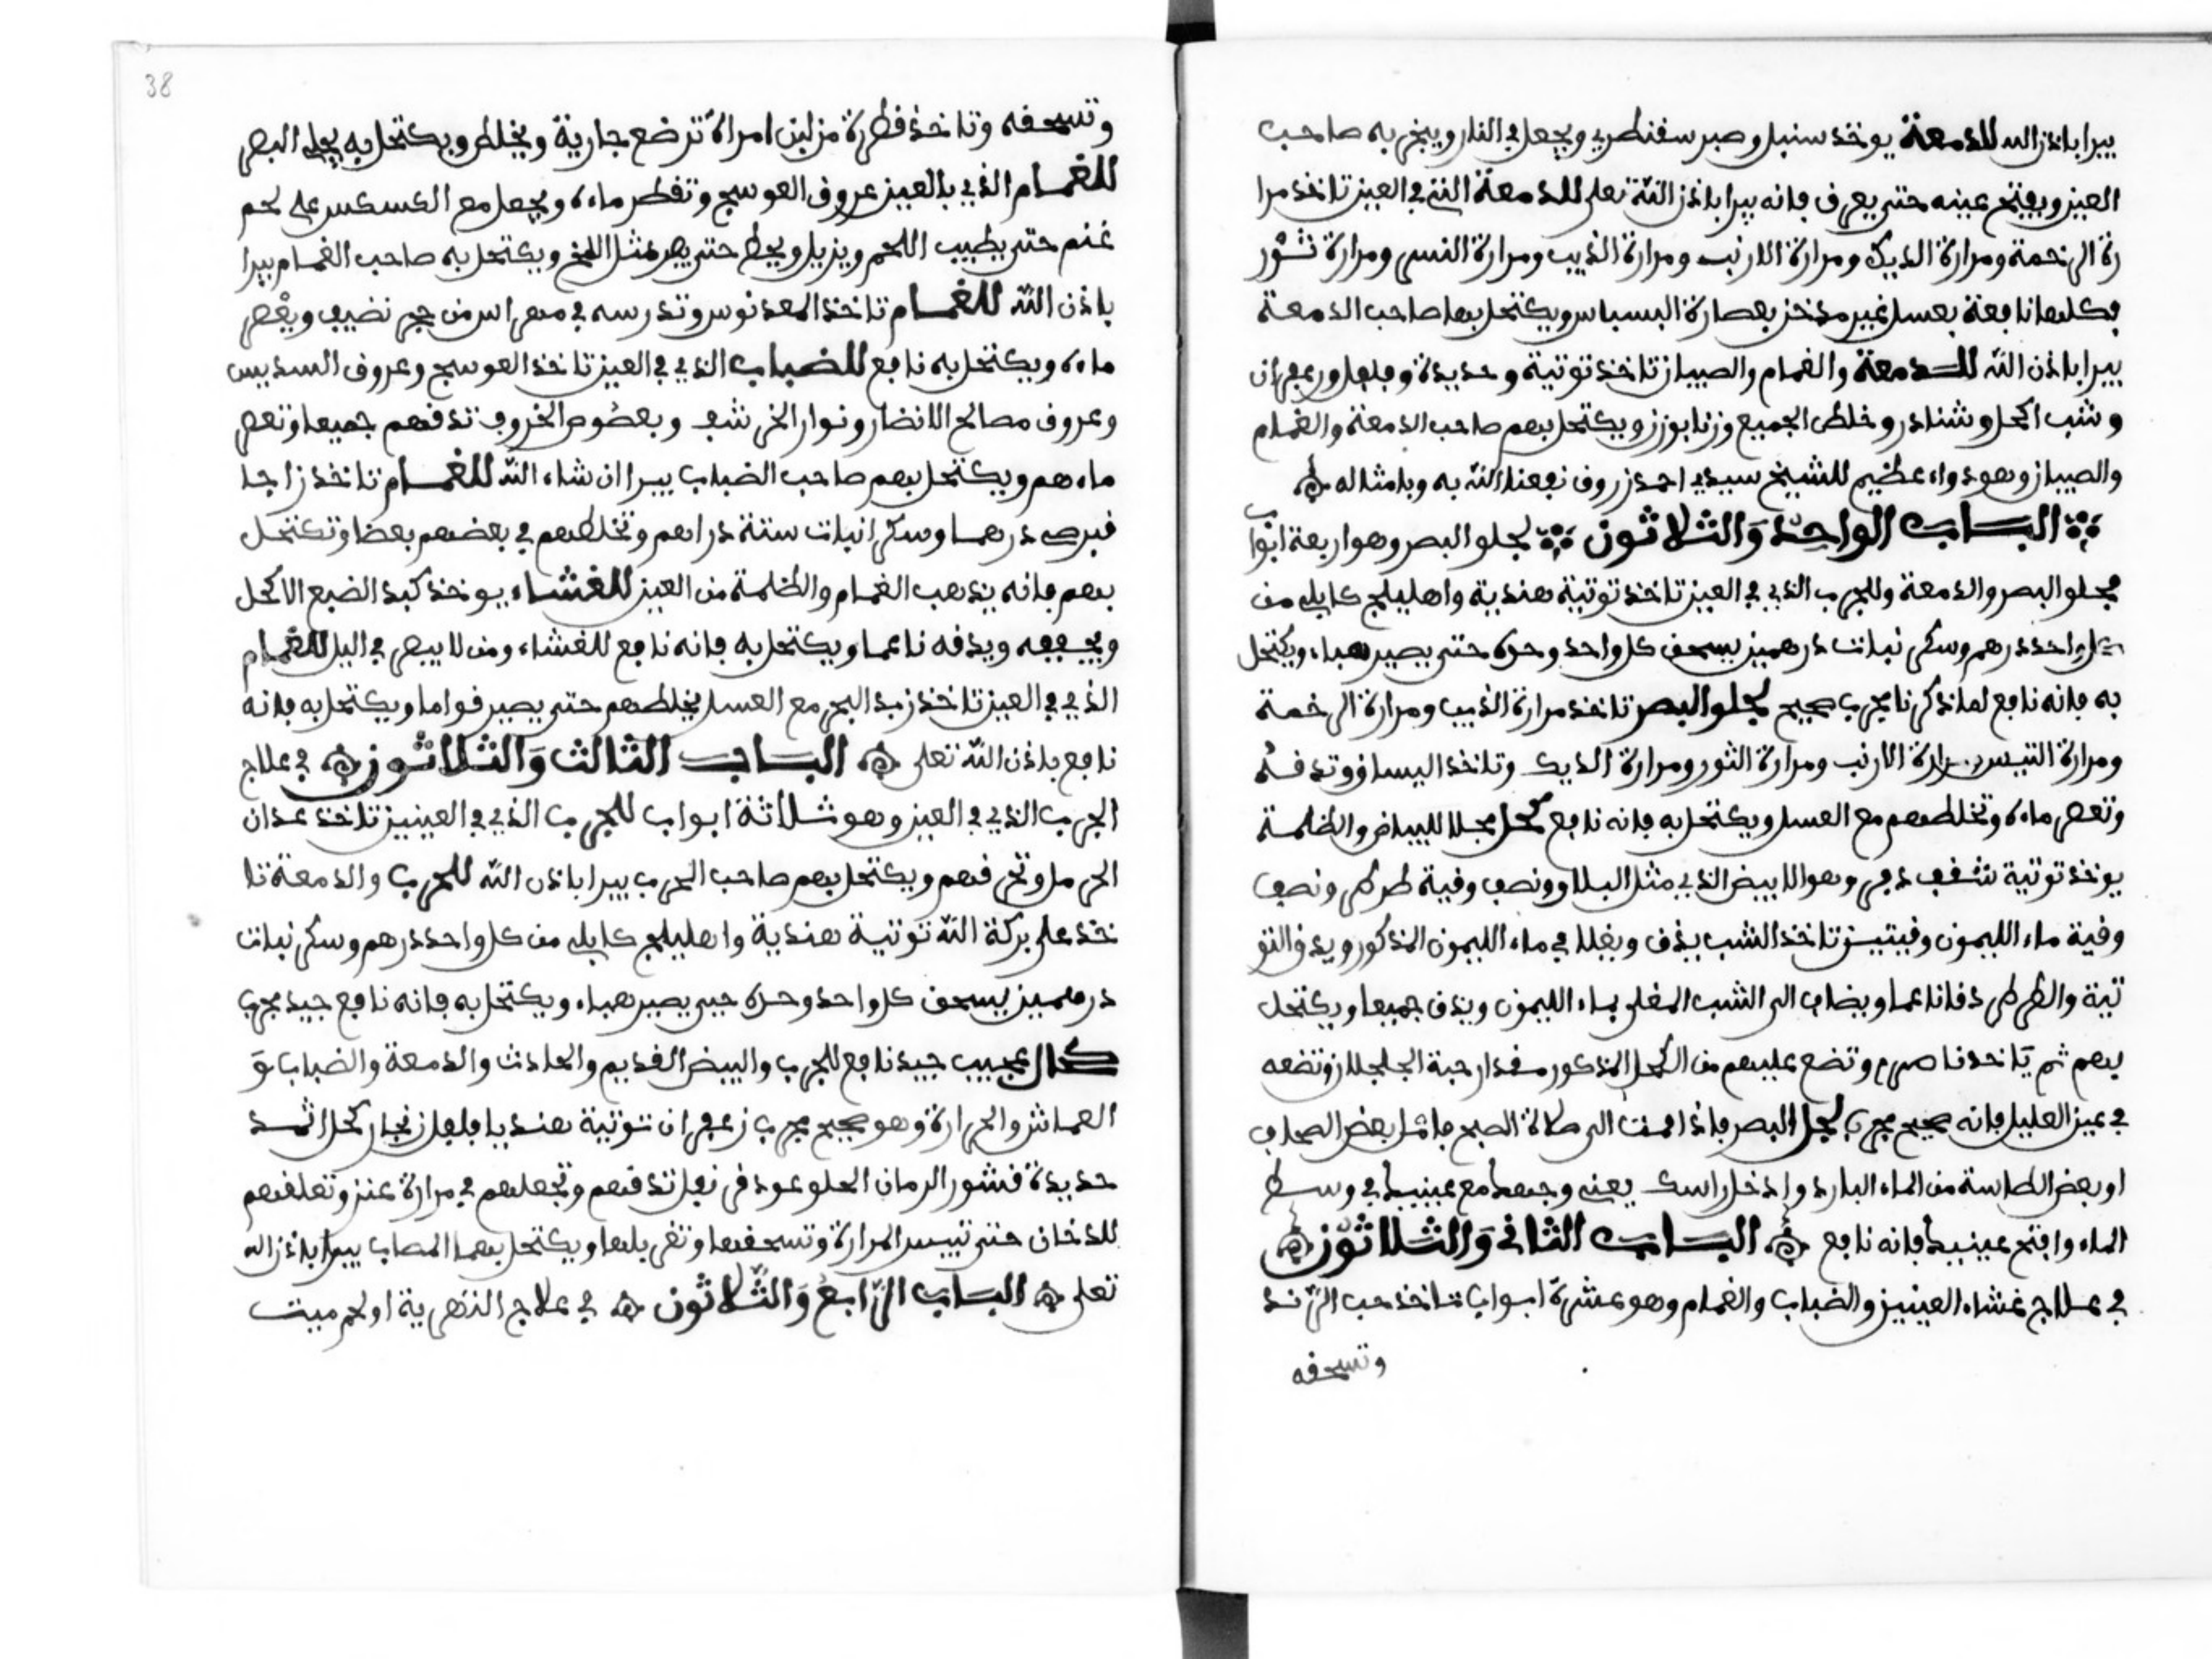 يبرا باذن الله للدمعة يوخذ سنبل وصبر سقنطري ويجعل في النار ويبخر به صاحب
العين ويفتح عينه حتى يعرق فانه يبرا باذن الله تعلى للدمعة التي في العين تاخذ مرا
رة الرخمة ومرارة الديك ومرارة الارنب ومرارة الذيب ومرارة النسر ومرارة ثور
فكلها نافعة بعسل غير مدخن بعصارة البسباس ويكتحل بها صاحب الدمعة
يبرا باذن الله للدمعة والغمام والصيبان تاخذ توتية وحديدة وفلفل وزعفران
وشب اكحل وشنادر وخلط الجميع وزنا بوزن ويكتحل بهم صاحب الدمعة والغمام
والصيبان وهو دواء عظيم للشيخ سيدي احمد زروق نفعنا الله به وبامثاله
الباب الواحد والثلاثون لجلو البصر وهو اربعة ابواب
مجلو البصر والدمعة وللجرب الذي في العين تاخذ توتية هندية واهليلج كابلي من
كل واحد درهم وسكر نبات درهمين يسحق كل واحد وحده حتى يصير هباء ويكتحل
به فانه نافع لما ذكرنا مجرب صحيح لجلو البصر تاخذ مرارة الذيب ومرارة الرخمة
ومرارة التيس ومرارة الارنب ومرارة الثور ومرارة الديك وتاخذ البسباس وتدقه
وتعصر ماءه وتخلطهم مع العسل ويكتحل به فانه نافع كحل مجلا للبياض والظلمة
يوخذ توتية شقف دفر وهو الابيض الذي مثل البلار ونصف وقية طرطر ونصف
وقية ماء الليمون وقيتين تاخذ الشب يدق ويغلا في ماء الليمون المذكور ويدق التو
تية والطرطر دقا ناعما ويضاف الى الشب المغلي بماء الليمون ويدق جميعا ويكتحل
بهم ثم تاخذ وتضع عليهم من الكحل المذكور مقدار حبة الجلجلان وتضعه
في عين العليل فانه صحيح مجرب لجل البصر فاذا قمت الى صلاة الصبح فاملا بعض الصحاف
او بعض الطاسة من الماء البارد وادخل راسك يعني وجهك مع عينيك في وسط
الماء وافتح عينيك فانه نافع الباب الثاني والثلاثون
في علاج غشاء العينين والضباب والغمام وهو عشرة ابواب تاخذ حب الرند
وتسحقه
38
وتسحقه وتاخذ قطرة من لبن امراة ترضع جارية ويخلط ويكتحل به يجلي البصر
للغمام الذي بالعين عروق العوسج وتقطر ماءه ويجعل مع الكسكس على لحم
غنم حتى يطيب اللحم ويزيل ويحط حتى يصر مثل المخ ويكتحل به صاحب الغمام يبرا
باذن الله للغمام تاخذ المعدنوس وتدرسه في مهراس من حجر نضيف ويعصر
ماءه ويكتحل به نافع للضباب الذي في العين تاخذ العوسج وعروق السديس
وعروق مصالح الانضار ونوار الخرشف وبعضوص الخروف تدقهم جميعا وتعصر
ماءهم ويكتحل بهم صاحب الضباب يبرا ان شاء الله للغمام تاخذ زاجا
قبرصي درهما وسكر انبات ستة دراهم وتخلطهم في بعضهم بعضا وتكتحل
بهم فانه يذهب الغمام والظلمة من العين للغشاء يوخذ كبد الضبع الاكحل
ويجففه ويدقه ناعما ويكتحل به فانه نافع للغشاء ومن لا يبصر في اليل للغمام
الذي في العين تاخذ زبد البحر مع العسل يخلطهم حتى يصير قواما ويكتحل به فانه
نافع باذن الله تعلى الباب الثالث والثلاثون في علاج
الجرب الذي في العين وهو ثلاثة ابواب للجرب الذي في العينين تاخذ عدان
الحرمل وتحرقهم ويكتحل بهم صاحب الجرب يبرا باذن الله للجرب والدمعة تا
خذ على بركة الله توتية هندية واهليلج كابلي من كل واحد درهم وسكر نبات
درهمين يسحق كل واحد وحده حتى يصير هباء ويكتحل به فانه نافع جيد مجرب
كحال عجيب جيد نافع للجرب والبيض القديم والحادث والدمعة والضباب و
العماش والحرارة وهو صحيح مجرب زعفران توتية هنديا فلفل زنجار كحل اثمد
حديدة قشور الرمان الحلو عود قرنفل تدقهم وتجعلهم في مرارة عنز وتعلقهم
للدخان حتى تيبس المرارة وتسحقها وتغربلها ويكتحل بهما المصاب يبرا باذن الله
تعلى الباب الرابع والثلاثون في علاج الشهرية او لحم ميت